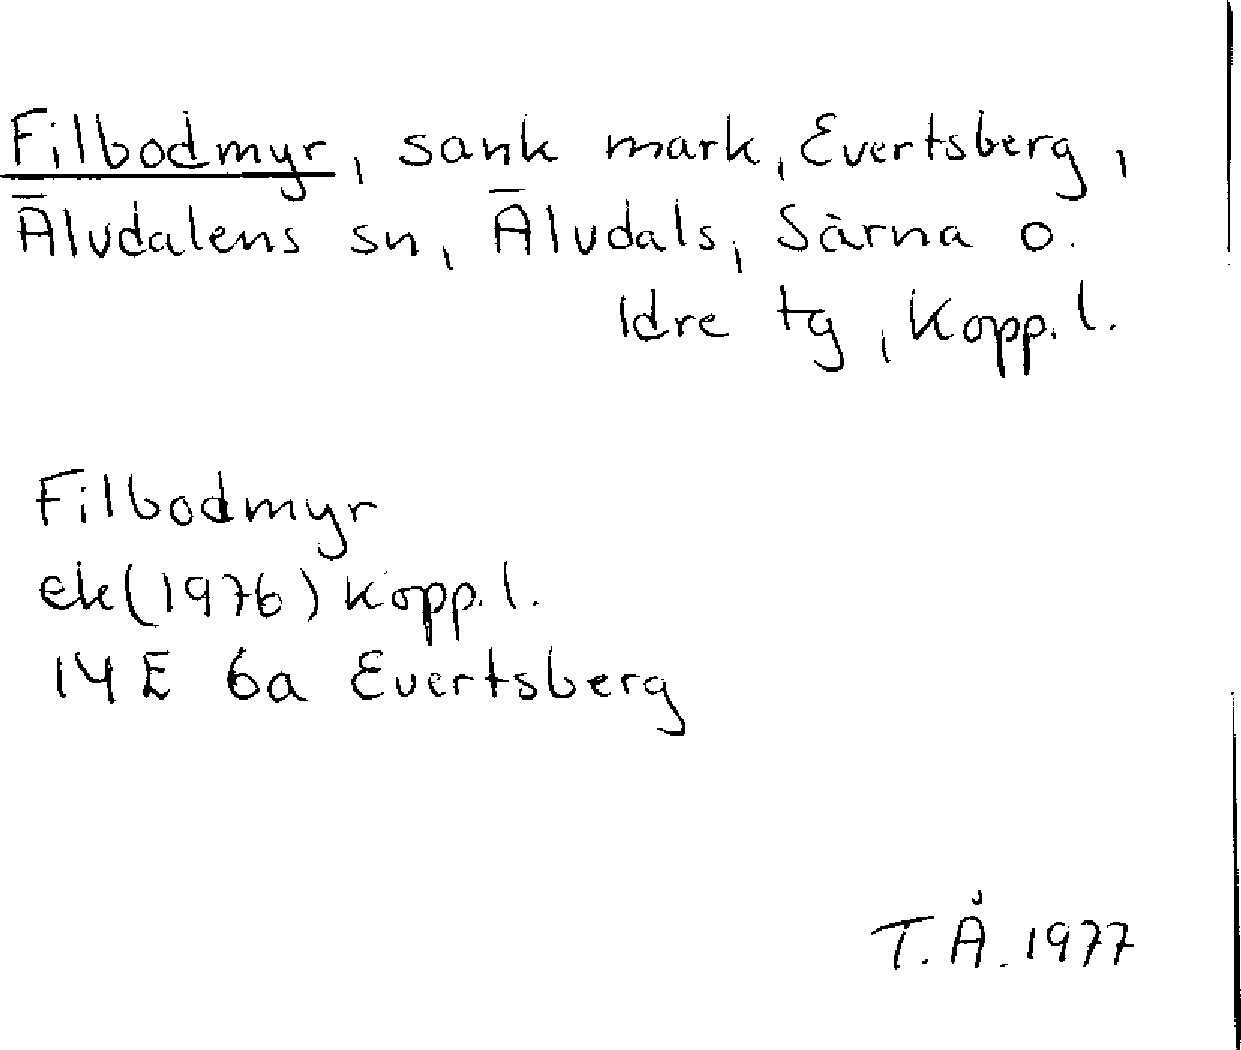 Filbodmyr, sank mark, Evertsberg,
Älvdalens sn, Älvdals, Särna o.
Idre tg, Kopp. l.
Filbodmyr
ek (1976) Kopp. l.
14 E 6a Evertsberg
T. Å. 1977